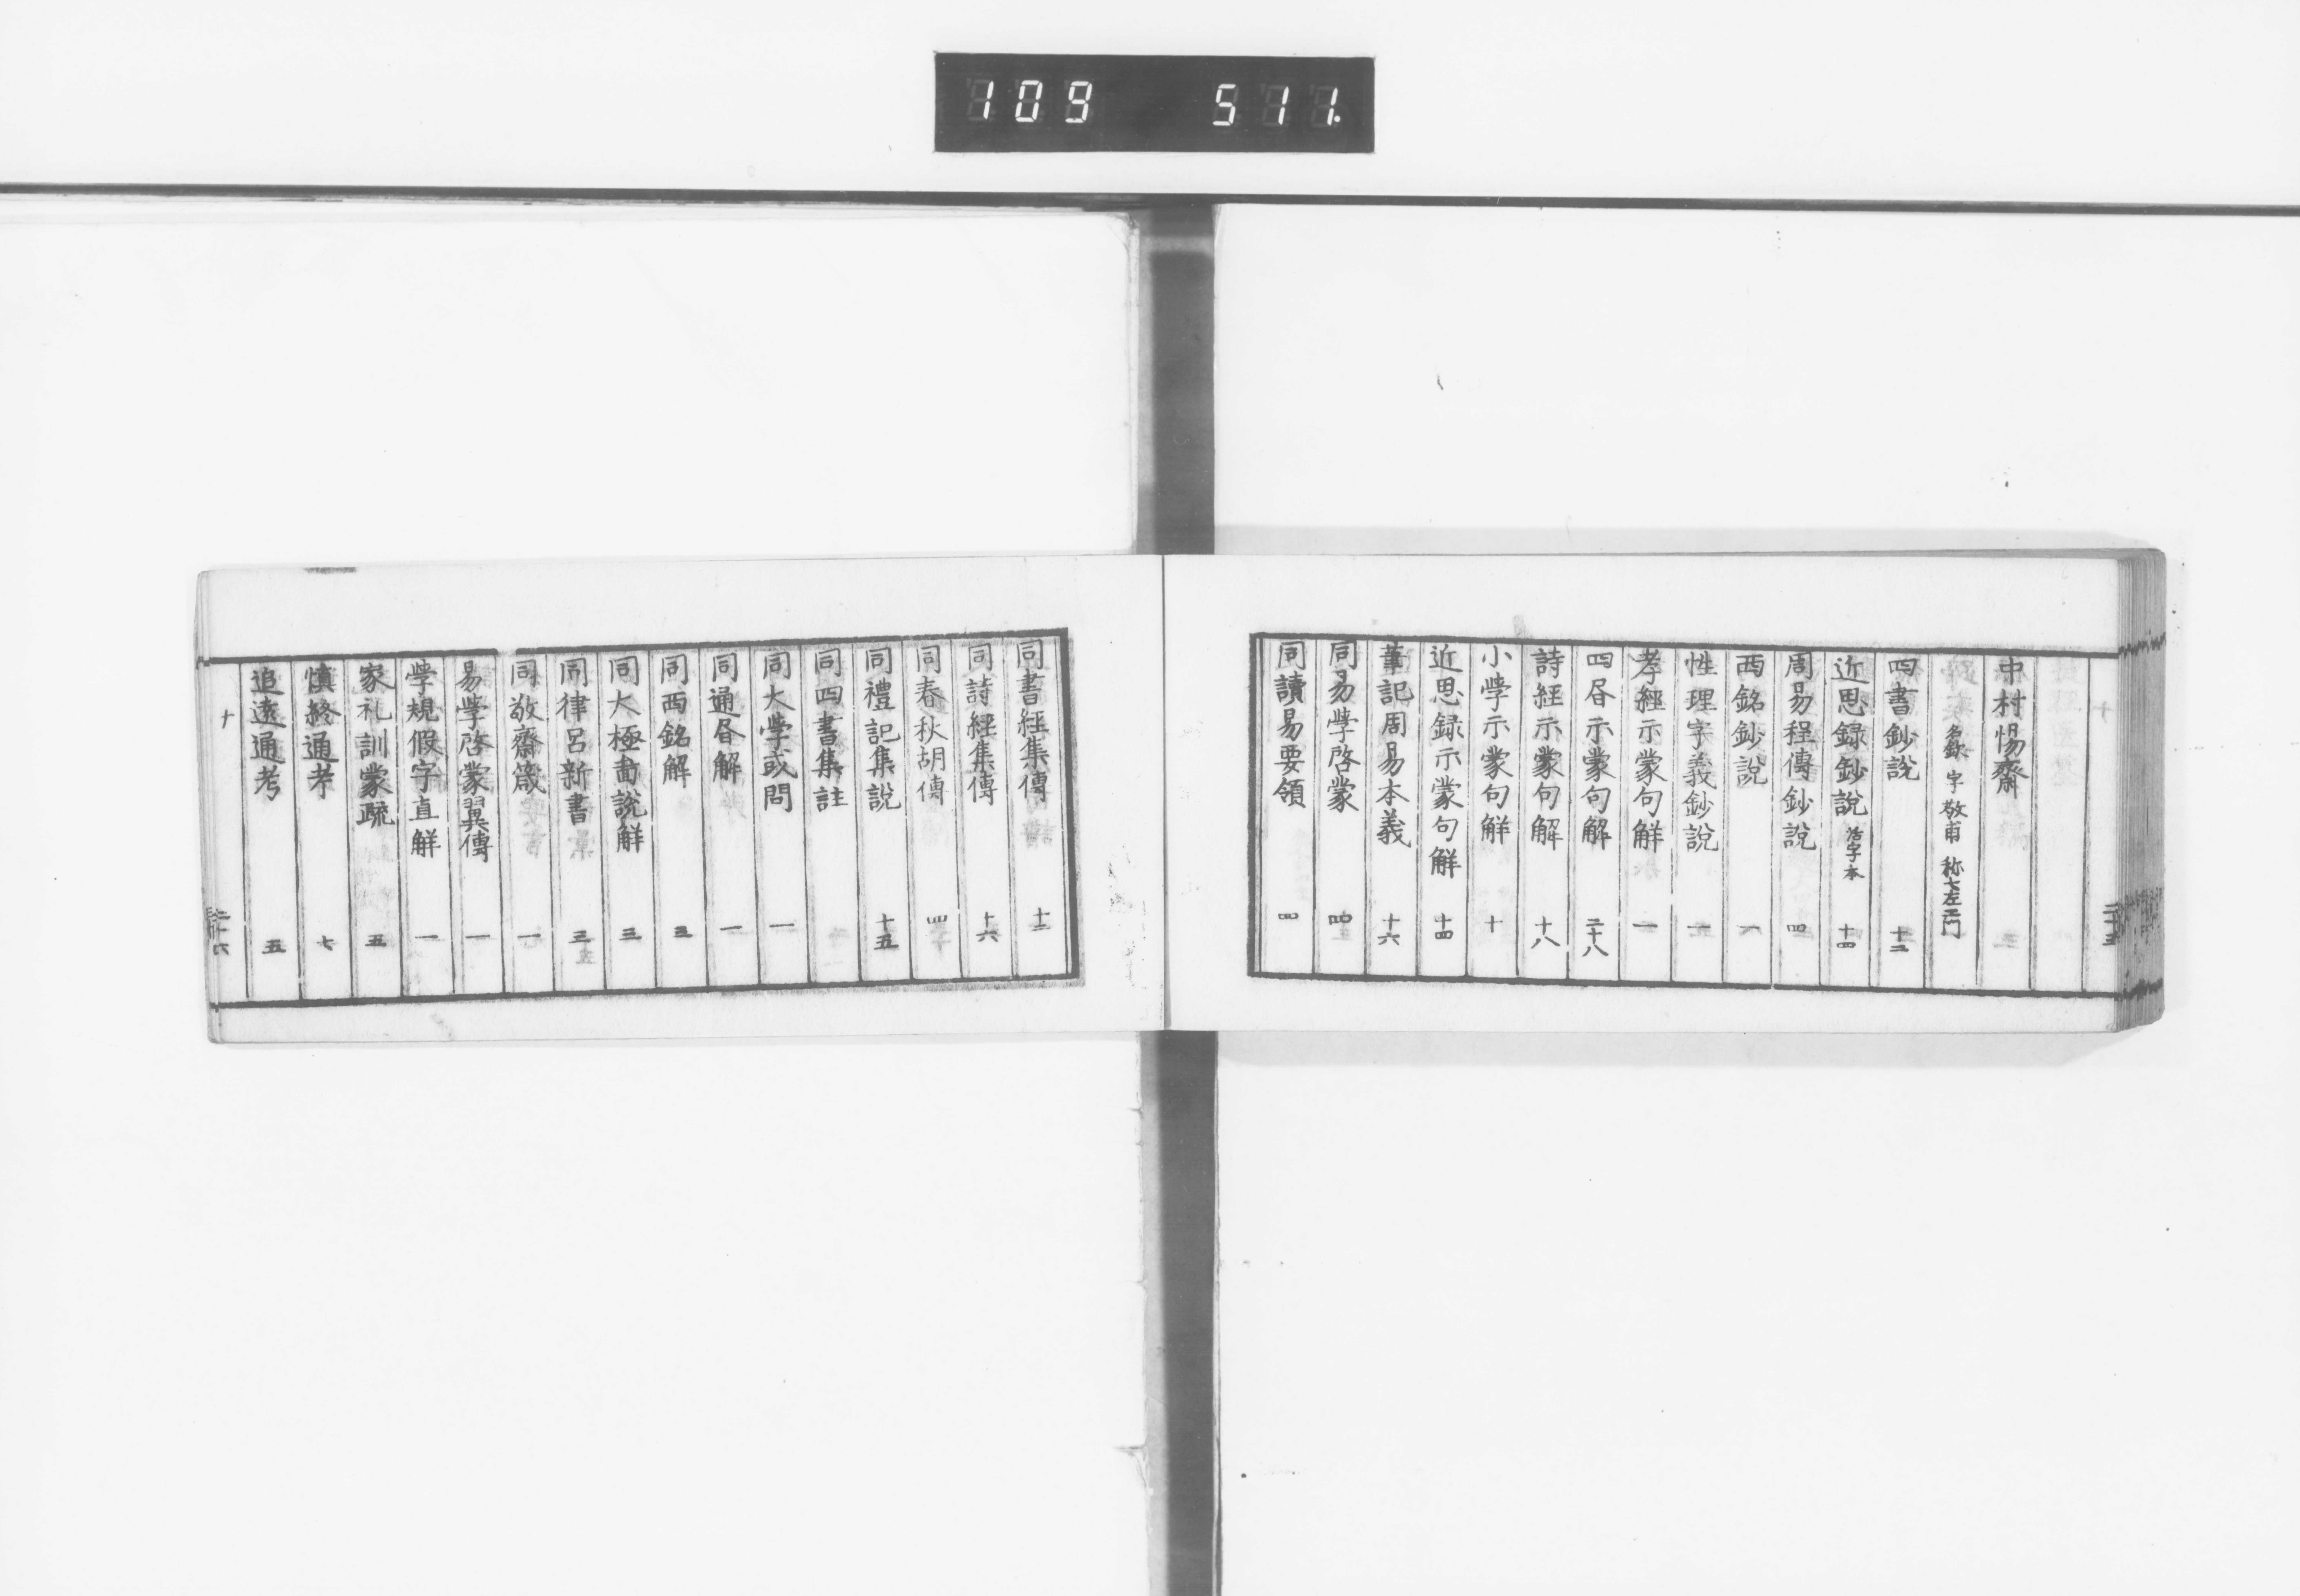 109 511.
中村惕齋
名欽 字敬甫 称七左衛門
四書鈔說 十二
近思録鈔說 活字本 十四
周易程傳鈔說 四
西銘鈔説 一
性理字義鈔說 一
孝經示蒙句解 一
四昏示蒙句解 二十八
詩經示蒙句解 十八
小學示蒙句解 十
近思録示蒙句解 十四
筆記周易本義 十六
同易學啓蒙 四
同讀易要領 四
同書經集傳 十二
同詩經集傳 十六
同春秋胡傳 四
同禮記集說 十五
同四書集註
同大學或問 一
同通昏解 一
同西銘解 三
同大極啚說解 三
同律呂新書 三
同敬齋箴 一
易學啓蒙翼傳 一
學規假字直解 一
家礼訓蒙疏 五
慎終通考 七
追遠通考 五
十 二十六